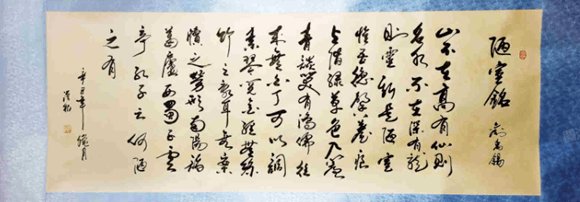 陋室銘
山不在高有仙则
名水不在深有龍
则靈斯是陋室
惟吾德馨苔痕
上階绿草色入簾
青談笑有鴻儒往
來無白丁可以調
素琴閲金經無絲
竹之亂耳無案
牘之劳形南陽諸
葛廬西蜀子雲
亭孔子云何陋
之有
辛丑年